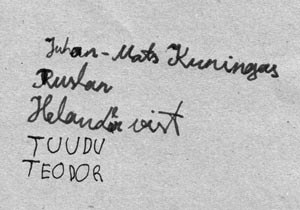 Juhan-Mats Kuningas
Ruslan
Helandär vist
TUUDU
TEODOR